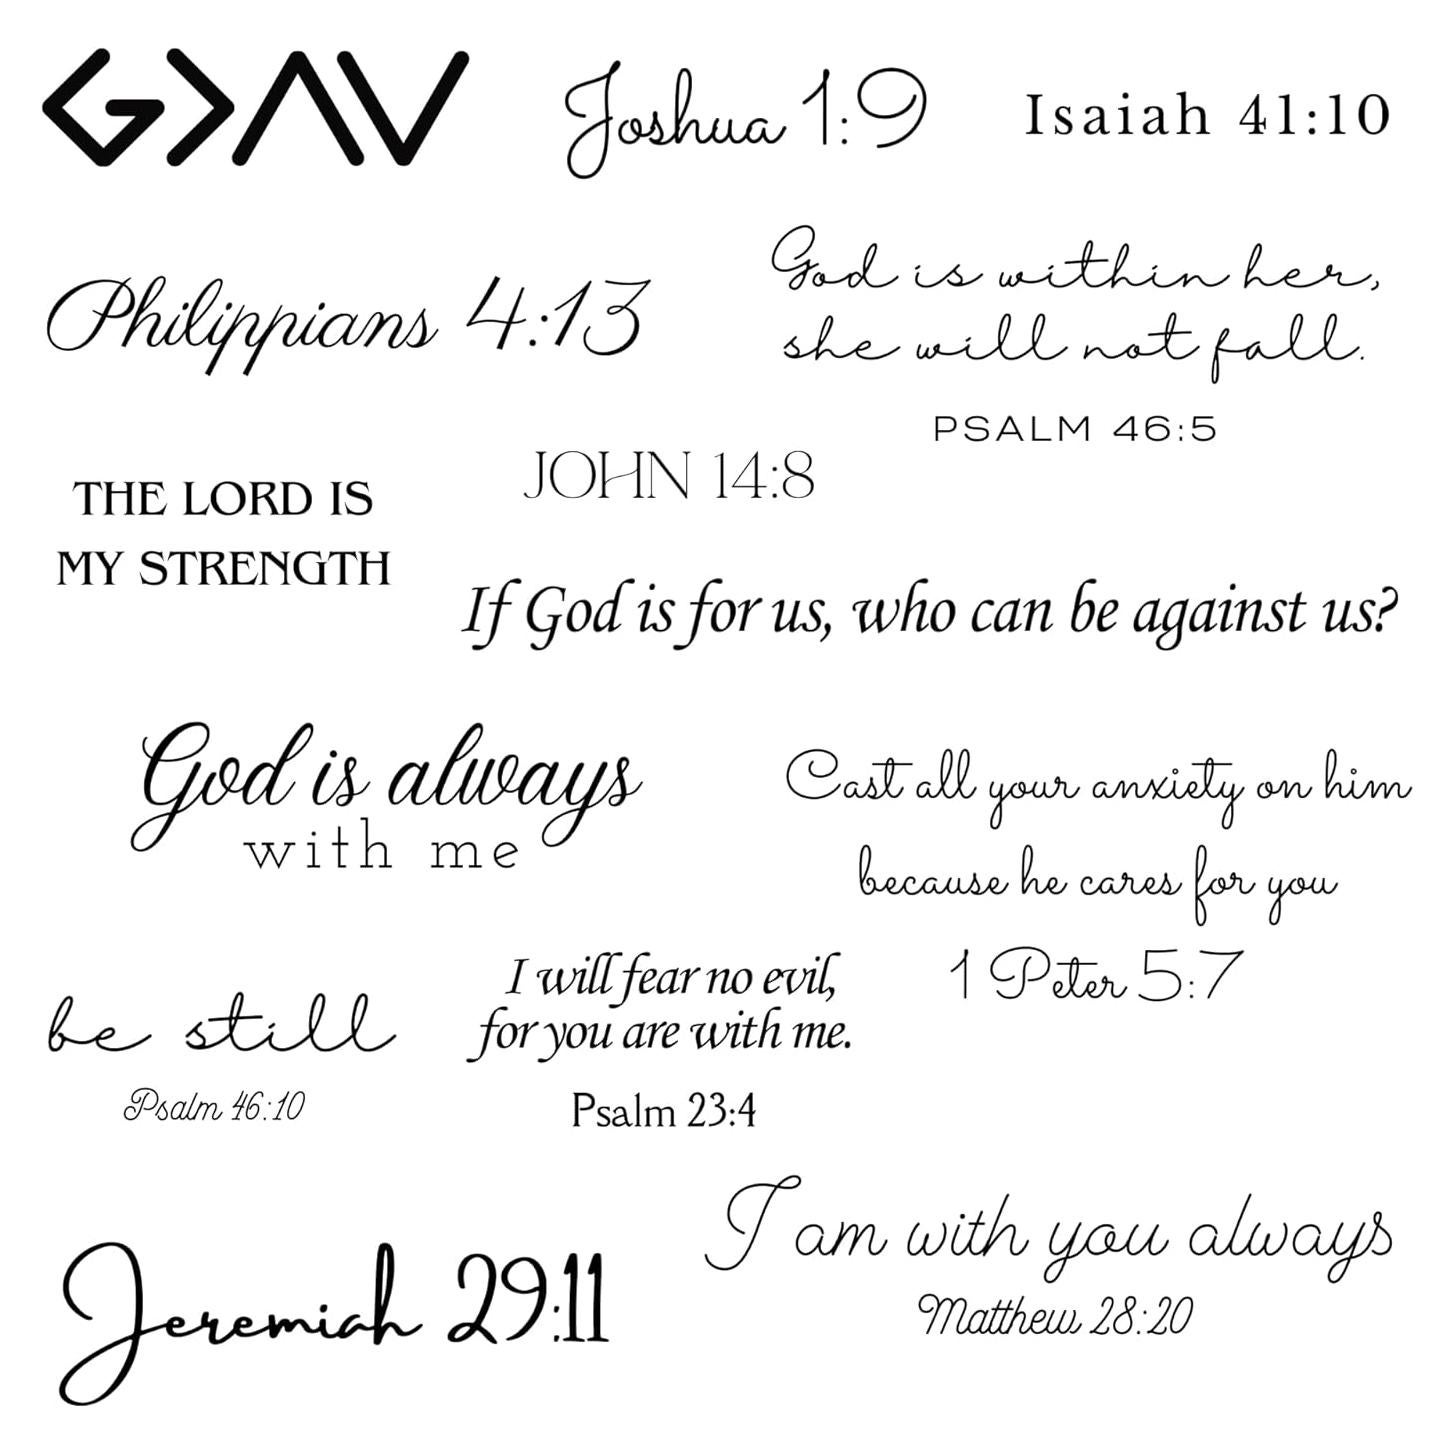 G>ΛV
Joshua 1:9
Isaiah 41:10
Philippians 4:13
God is within her,
she will not fall.
PSALM 46:5
JOHN 14:8
THE LORD IS
MY STRENGTH
If God is for us, who can be against us?
God is always
with me
Cast all your anxiety on him
because he cares for you
1 Peter 5:7
be still
Psalm 46:10
I will fear no evil,
for you are with me.
Psalm 23:4
I am with you always
Matthew 28:20
Jeremiah 29:11